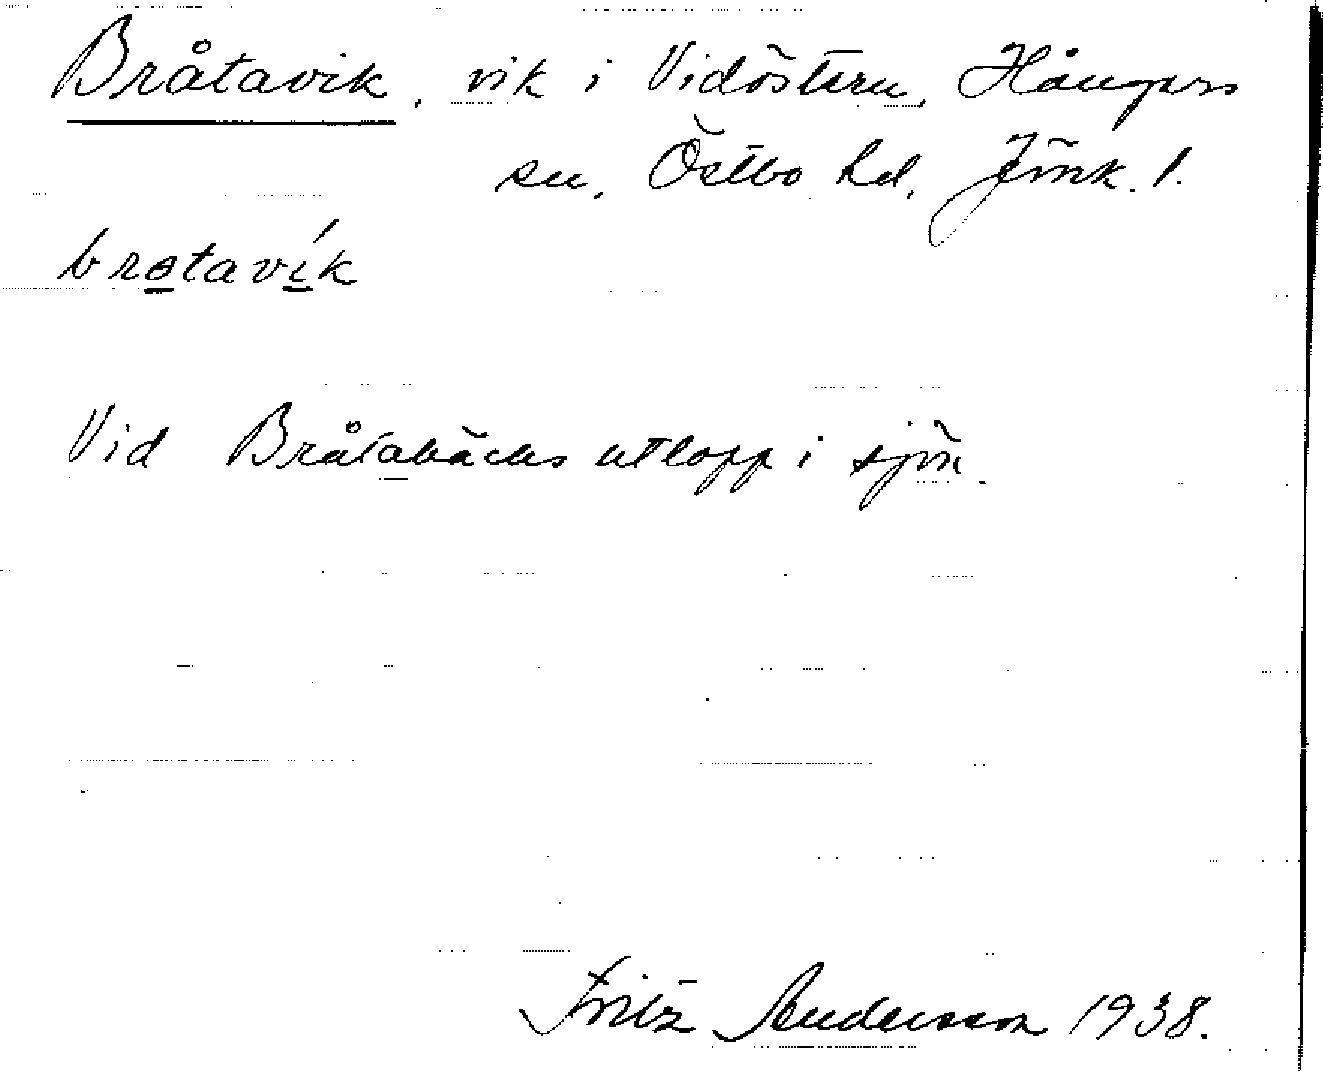 Bråtavik, vik i Vidöstern, Hångers
sn, Östbo hd, Jönk. l.
brɵtavík
Vid Bråtabäcks utlopp i sjön.
Fritz Andersson 1938.